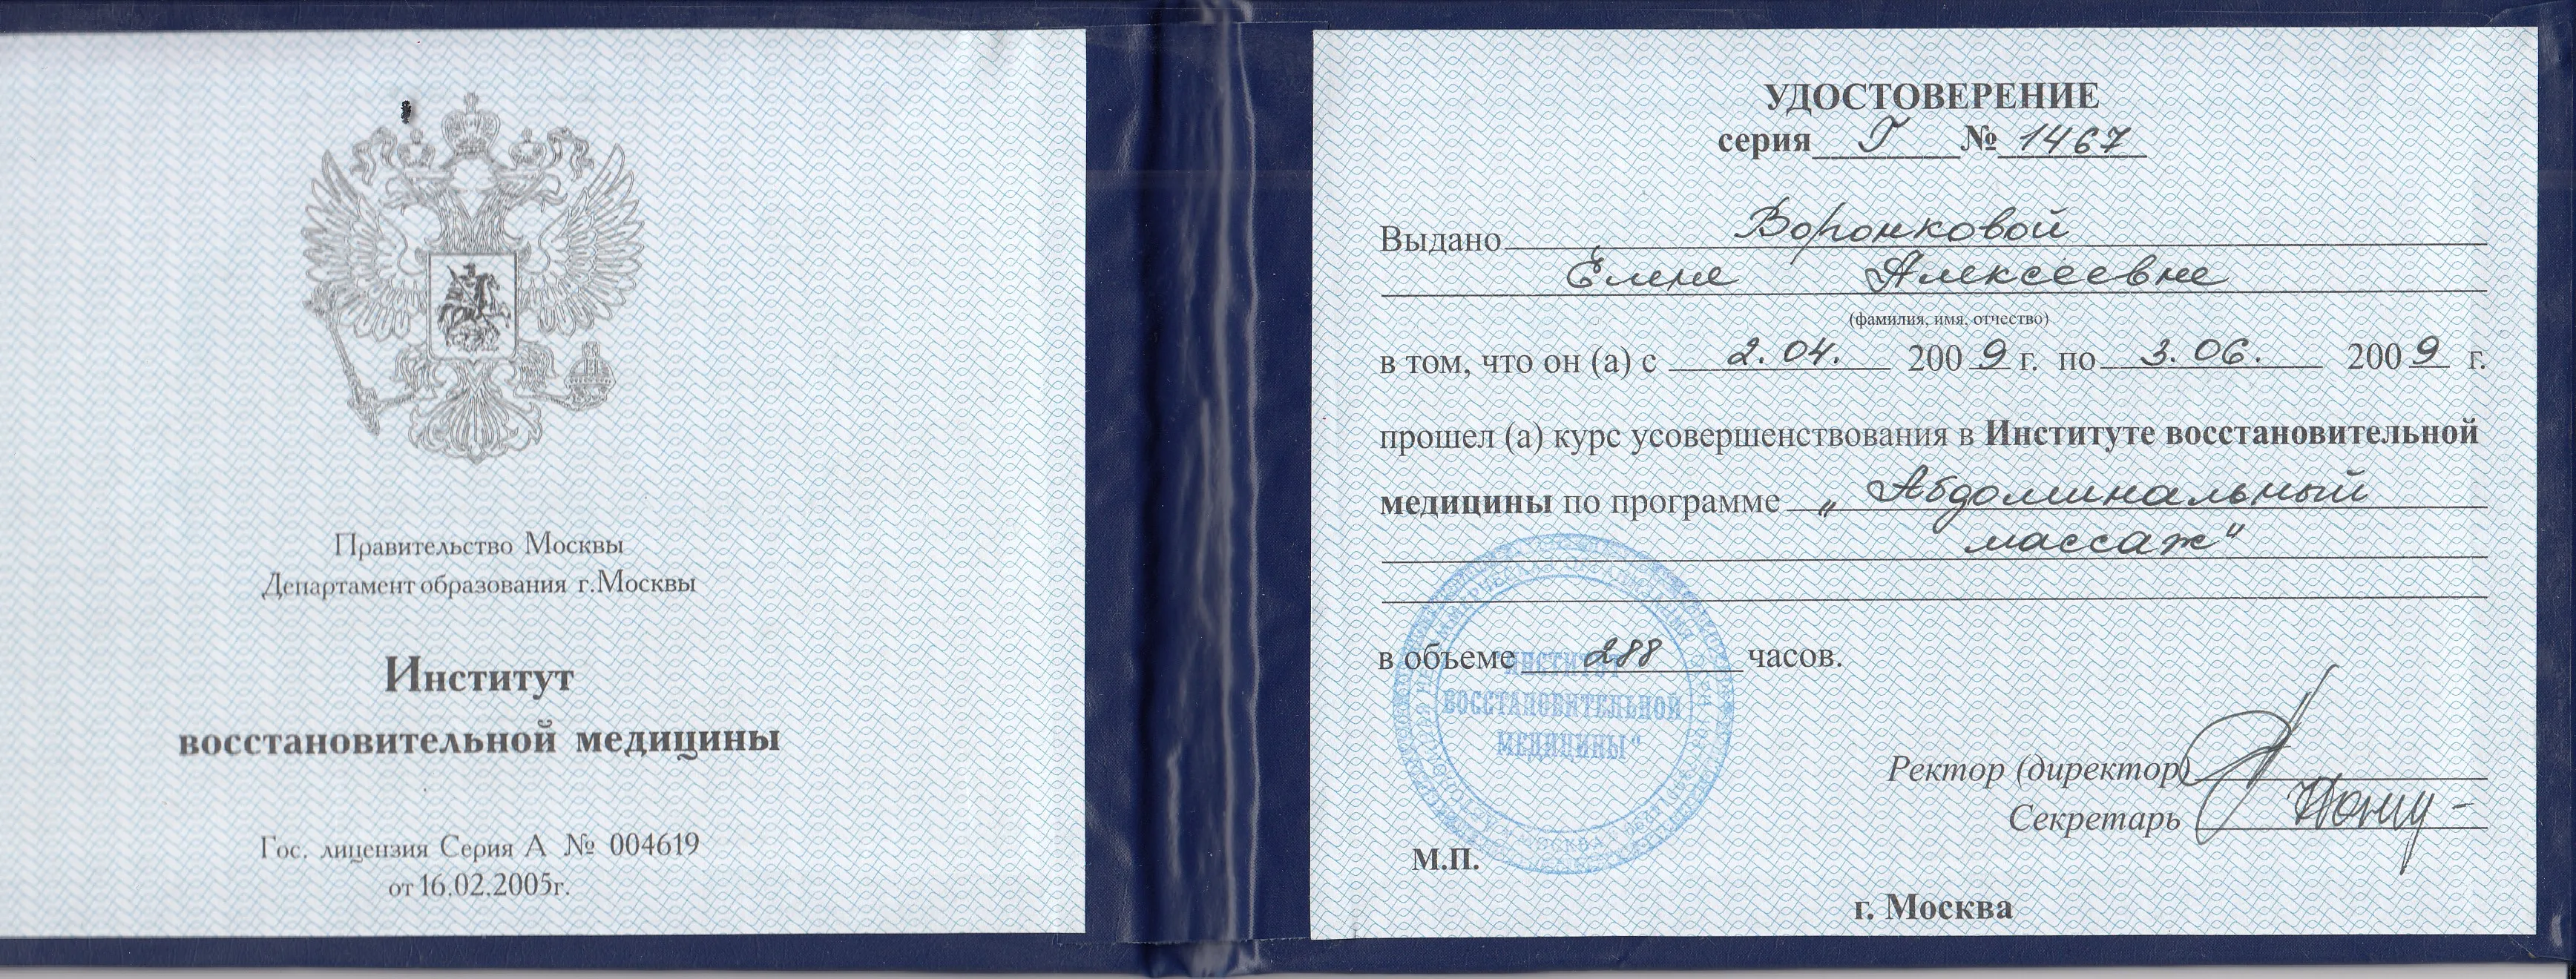 Правительство Москвы
Департамент образования г.Москвы
Институт
восстановительной медицины
Гос. лицензия Серия А № 004619
от 16.02.2005г.
УДОСТОВЕРЕНИЕ
серия Г № 1467
Выдано Воронковой
Елене Алексеевне
(фамилия, имя, отчество)
в том, что он (а) с 2.04. 2009 г. по 3.06. 2009 г.
прошел (а) курс усовершенствования в Институте восстановительной
медицины по программе „Абдоминальный
массаж"
в объеме 288 часов.
"ИНСТИТУТ
ВОССТАНОВИТЕЛЬНОЙ
МЕДИЦИНЫ"
МОСКВА
Ректор (директор)
Секретарь
М.П.
г. Москва